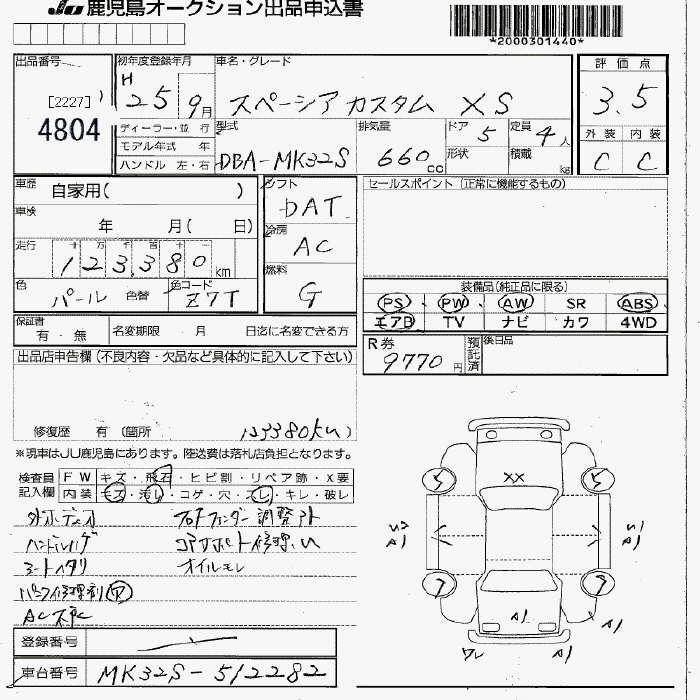 JU 鹿児島オークション出品申込書
*2000301440*
出品番号
[2227]
4804
初年度登録年月
H 25 9月
車名・グレード
スペーシアカスタム XS
評価点
3.5
外装 内装
C C
ディーラー・並 行
モデル年式 年
ハンドル 左・右
型式
DBA-MK32S
排気量
660 cc
ドア 5
形状
定員 4人
積載 kg
車歴 自家用( )
車検 年 月( 日)
走行 十 万 千 百 十
123,380 km
色 パール 色替
色コード Z7T
シフト
DAT
冷房
AC
燃料
G
セールスポイント (正常に機能するもの)
装備品(純正品に限る)
PS PW AW SR ABS
エアB TV ナビ カワ 4WD
保証書
有・無
名変期限 月 日迄に名変できる方
R券
9770円
預託済
後日品
出品店申告欄(不良内容・欠品など具体的に記入して下さい)
修復歴 有(箇所 )
※現車はJU鹿児島にあります。陸送費は落札店負担となります。
検査員記入欄
FW キズ・飛石・ヒビ割・リペア跡・X要
内装 キズ・汚レ・コゲ・穴・スレ・キレ・破レ
ハンドルハゲ
オイルモレ
XX
A1
A1
A1
A1
ワレ
A1
登録番号
車台番号 MK32S-512282